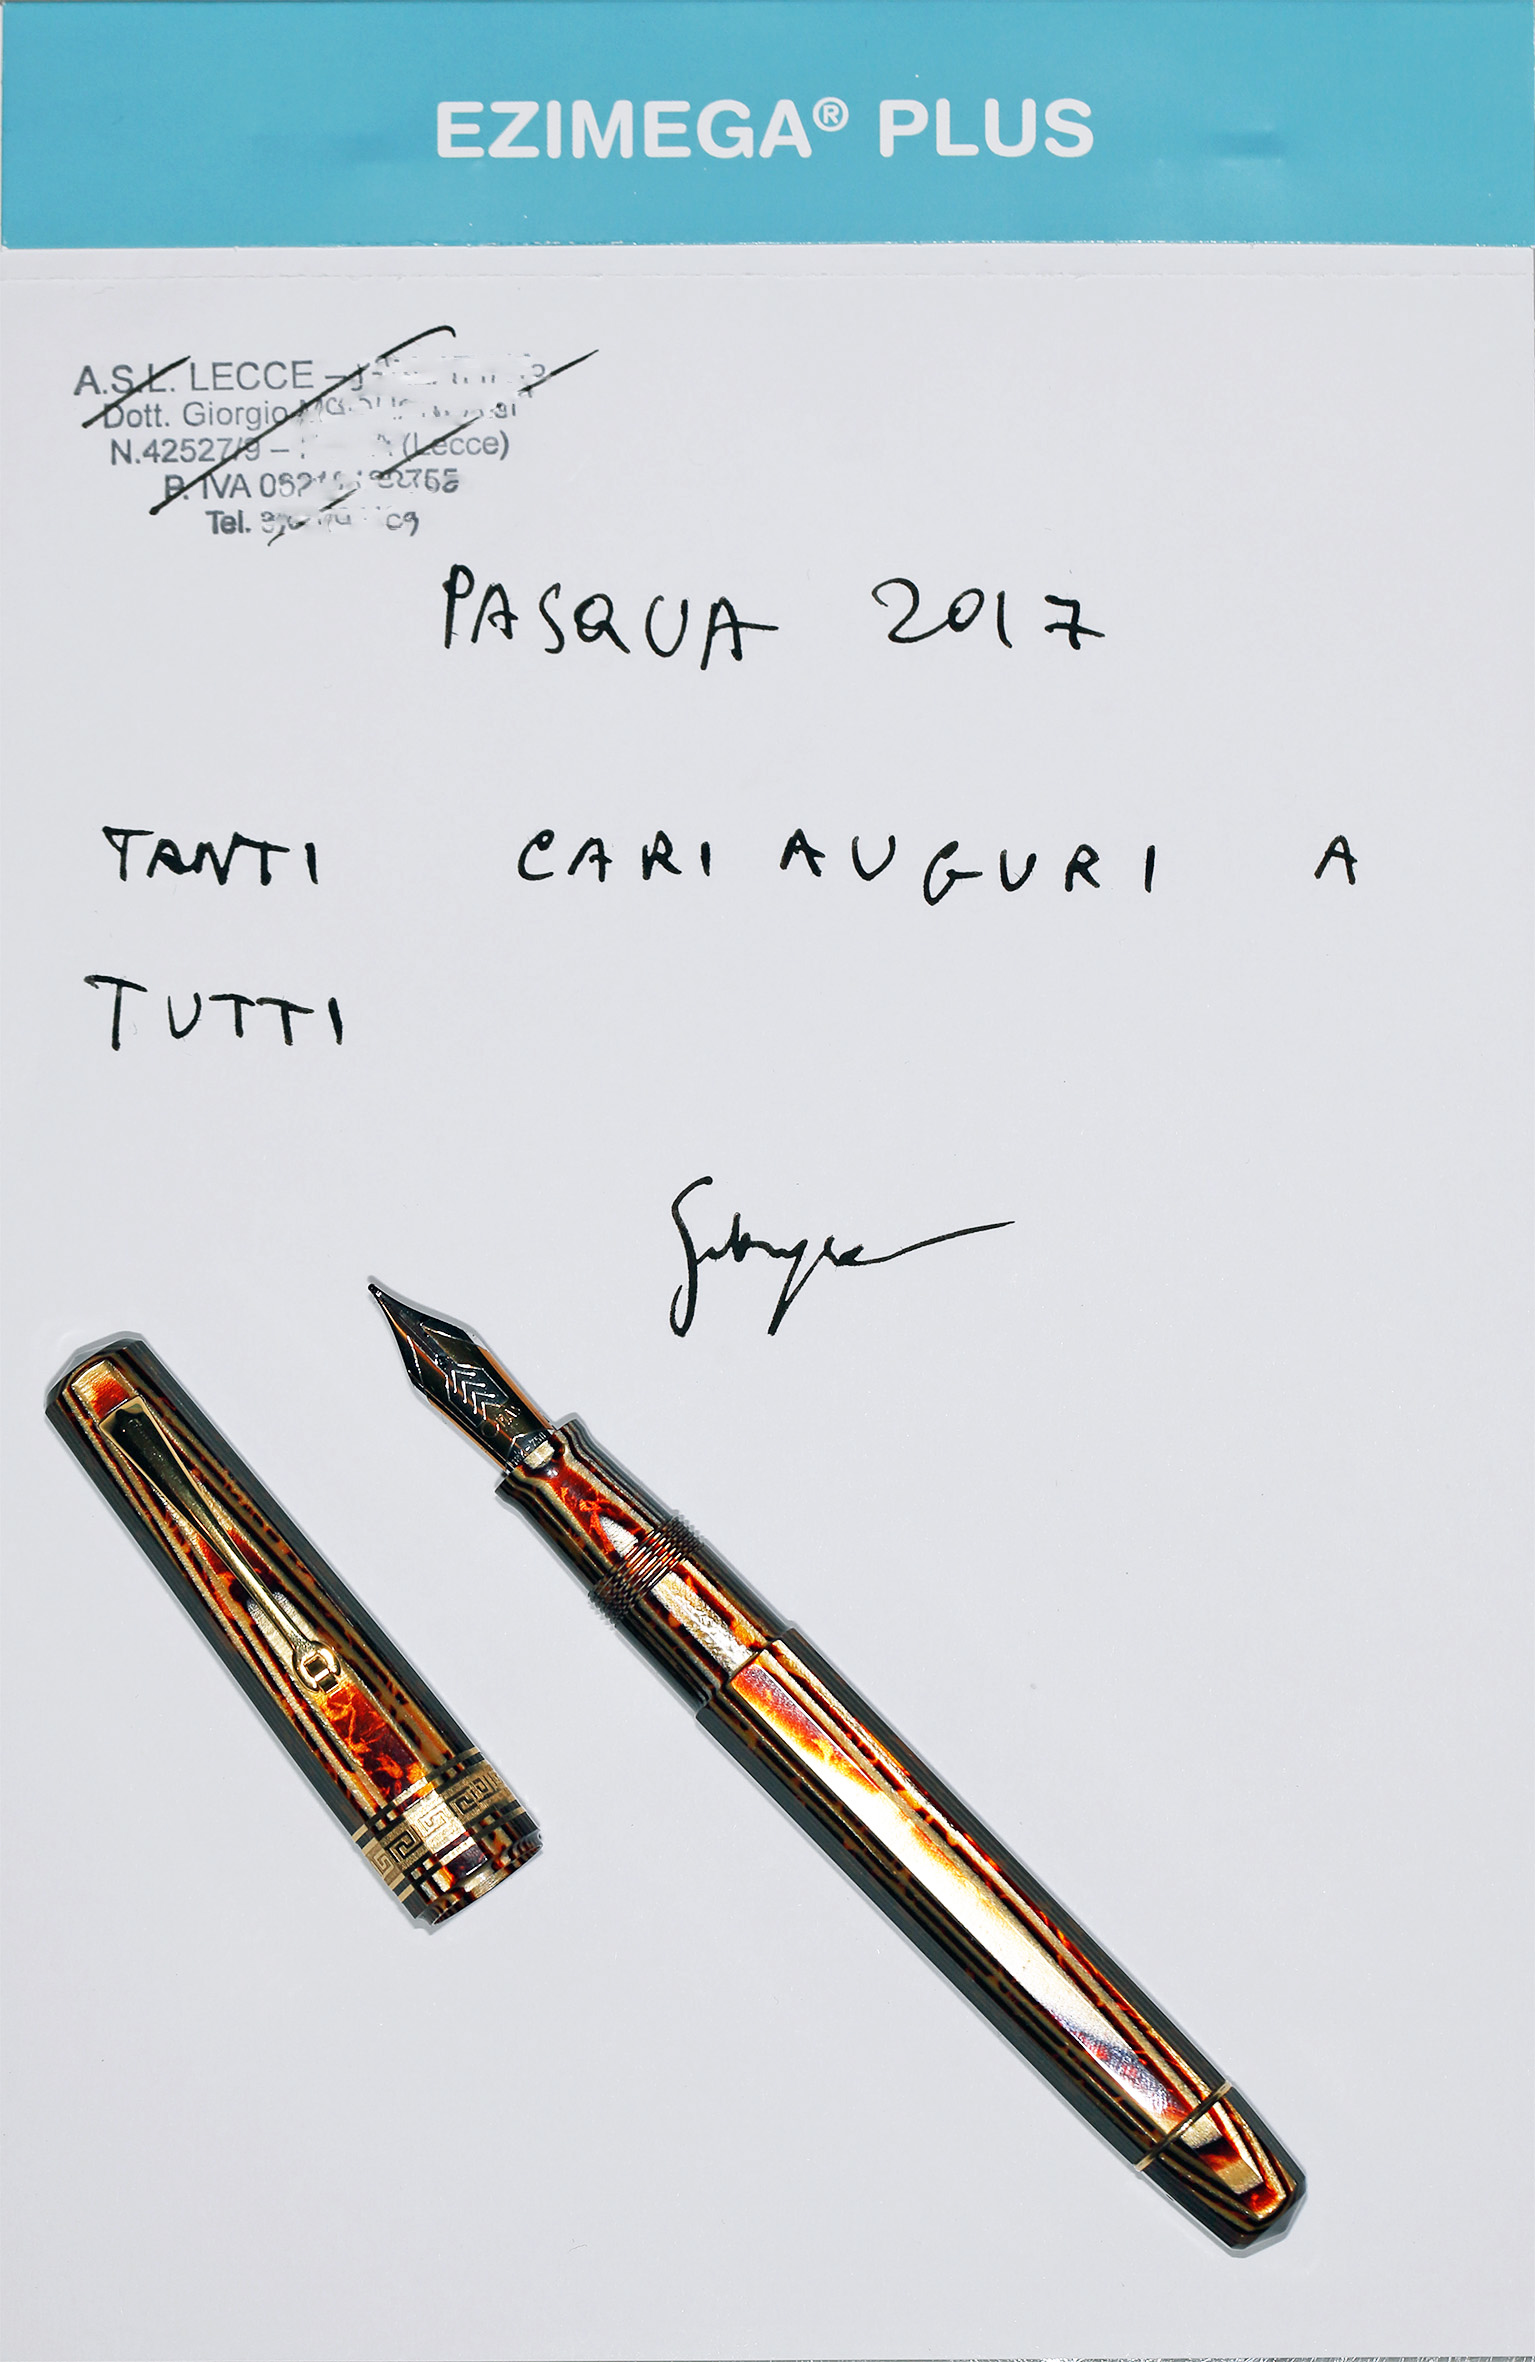 EZIMEGA® PLUS
A.S.L. LECCE –
Dott. Giorgio
N.42527/9 – (Lecce)
P. IVA
Tel.
PASQUA 2017
TANTI CARI AUGURI A
TUTTI